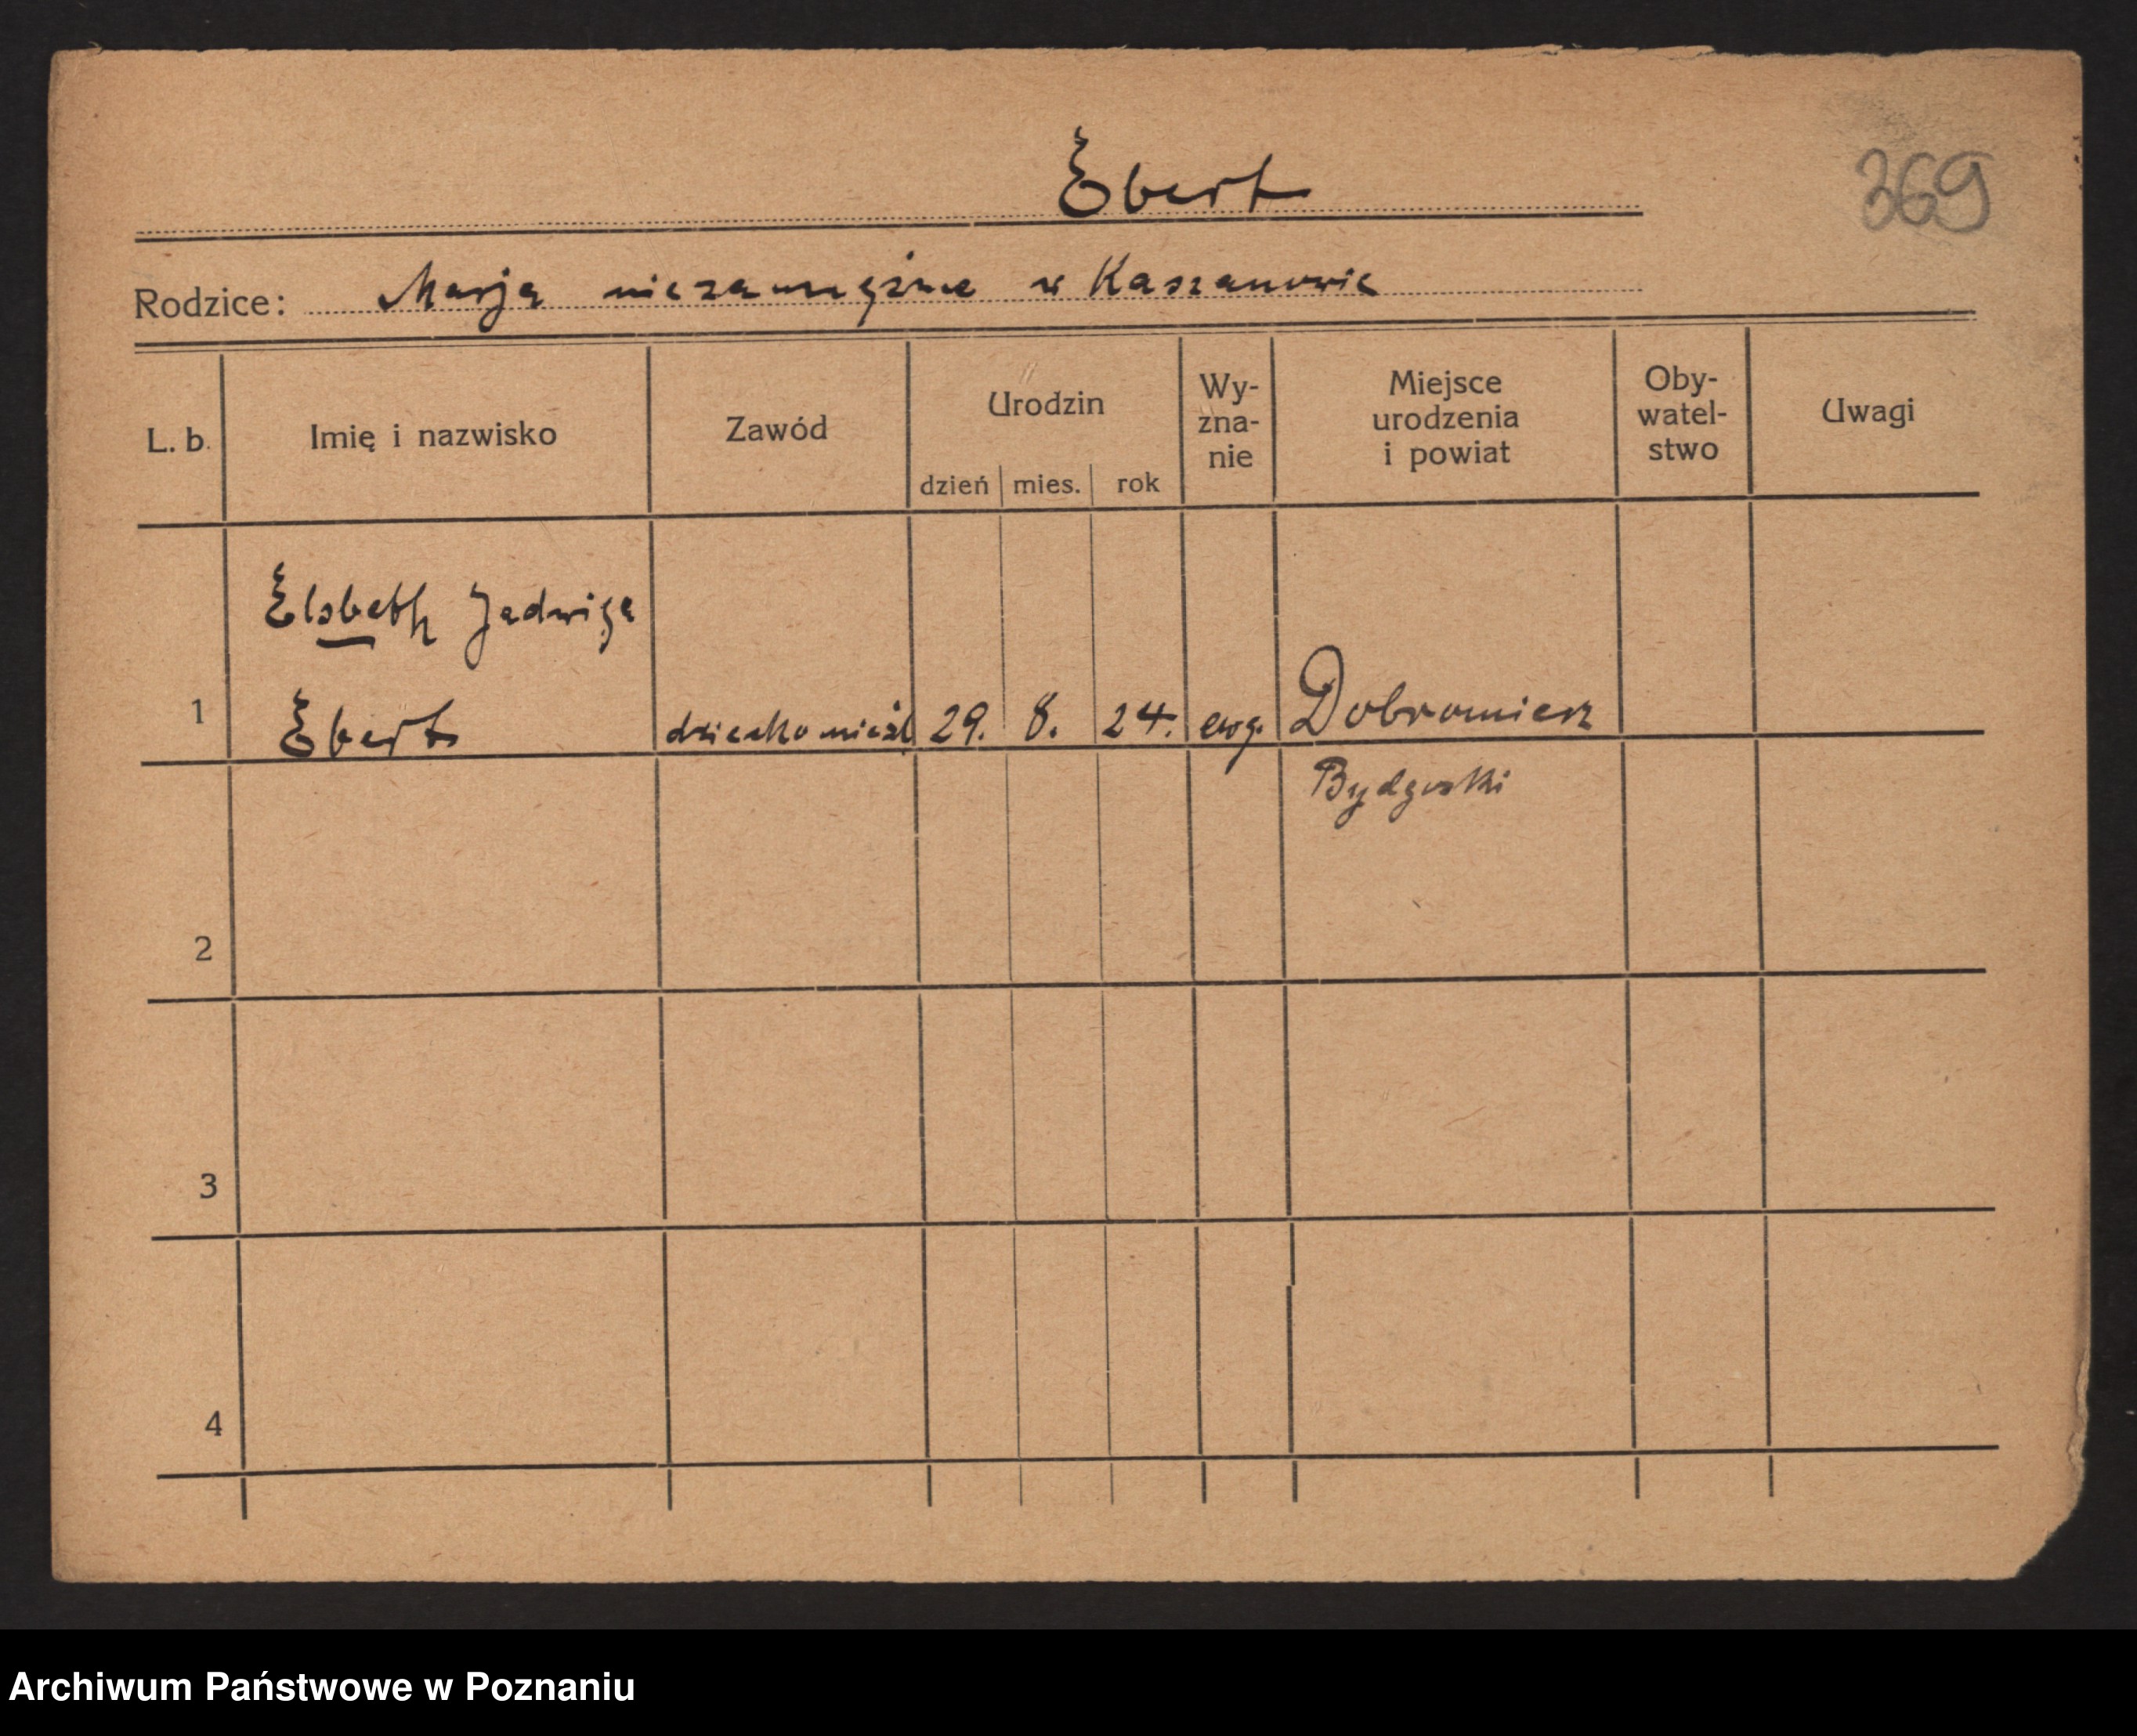 Ebert
369
Rodzice: Marja niezamężne w Kaszanowie
L. b. Imię i nazwisko Zawód Urodzin Wy- Miejsce Oby- Uwagi
zna- urodzenia watel-
nie i powiat stwo
dzień mies. rok
Elsbeth Jadwiga
1 Ebert dziecko nieśl 29. 8. 24. ewg. Dobromierz
Bydgoski
2
3
4
Archiwum Państwowe w Poznaniu